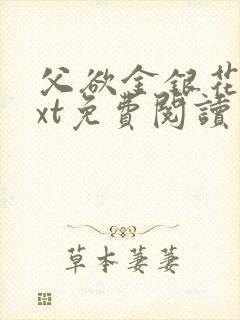 父欲金银花
xt免費閱讀
草本萋萋